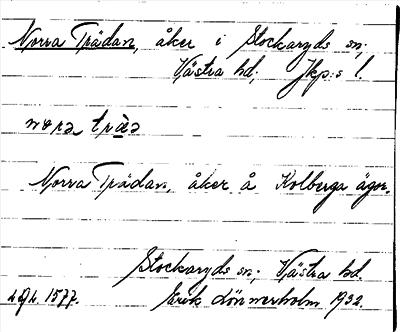 Norra Trädan, åker i Stockaryds sn;
Västra hd; Jkp:s l.
nora träa
Norra Trädan, åker å Kolberga ägor.
Stockaryds sn; Västra hd.
1577. Erik Lönnerholm 1932.